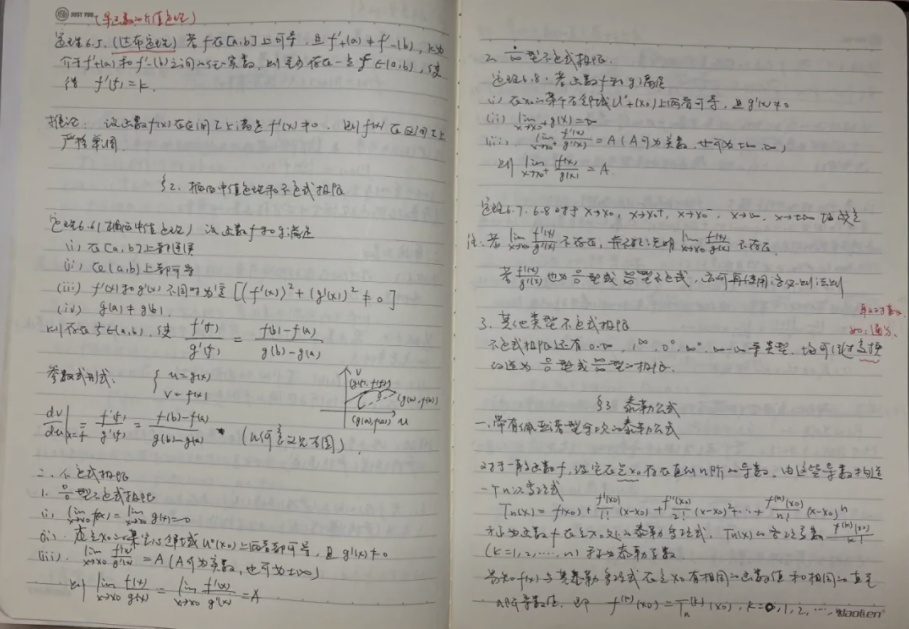 (导函数的介值定理)
定理6.5.(达布定理) 若f在[a,b]上可导,且f'₊(a)≠f'₋(b),k为
介于f'₊(a)和f'₋(b)之间任一实数,则至少存在一点ξ∈(a,b),使
得 f'(ξ)=k.
推论 设函数f(x)在区间I上满足f'(x)≠0,则f(x)在区间I上
严格单调.
§2. 柯西中值定理和不定式极限
定理6.6(柯西中值定理) 设函数f和g满足
(i) 在[a,b]上都连续
(ii) 在(a,b)上都可导
(iii) f'(x)和g'(x)不同时为零[(f'(x))²+(g'(x))²≠0]
(iv) g(a)≠g(b).
则存在ξ∈(a,b),使 f'(ξ)/g'(ξ) = (f(b)-f(a))/(g(b)-g(a))
参数式形式: { u=g(x)
v=f(x)
v
u
dv/du|x=ξ = f'(ξ)/g'(ξ) = (f(b)-f(a))/(g(b)-g(a)) (几何意义见右图)
二.不定式极限
1. 0/0型不定式极限
(i) lim x→x₀ f(x)=lim x→x₀ g(x)=0
(ii) 在点x₀的某空心邻域U°(x₀)上两者都可导,且g'(x)≠0
(iii) lim x→x₀ f'(x)/g'(x)=A(A可为实数,也可为±∞)
则 lim x→x₀ f(x)/g(x)=lim x→x₀ f'(x)/g'(x)=A
2. ·/∞型不定式极限
定理6.8.若函数f和g满足
(i) 在x₀的某个右邻域U°₊(x₀)上两者可导,且g'(x)≠0
(ii) lim x→x₀⁺ g(x)=∞
(iii) lim x→x₀⁺ f'(x)/g'(x)=A(A可为实数,也可为±∞,∞)
则 lim x→x₀⁺ f(x)/g(x)=A.
定理6.7,6.8对于x→x₀,x→x₀⁺,x→x₀⁻,x→∞,x→±∞均成立
注:若 lim x→x₀ f'(x)/g'(x) 不存在,并不能说明 lim x→x₀ f(x)/g(x) 不存在
若 f'(x)/g'(x) 也为 0/0 型或 ∞/∞ 型不定式,亦可再使用洛必达法则
3. 其他类型不定式极限
不定式极限还有0·∞,1^∞,0⁰,∞⁰,∞-∞等类型,均可经过变换
改造为 0/0 型或 ∞/∞ 型极限.
§3 泰勒公式
一.带有佩亚诺型余项的泰勒公式
对于一般函数f,设它在点x₀存在直到n阶的导数,由这些导数构造
一个n次多项式
Tn(x)=f(x₀)+f'(x₀)/1!(x-x₀)+f''(x₀)/2!(x-x₀)²+…+f⁽ⁿ⁾(x₀)/n!(x-x₀)ⁿ
称为函数f在点x₀处的泰勒多项式,Tn(x)的各项系数 f⁽ᵏ⁾(x₀)/k!
(k=1,2,…,n)称为泰勒系数
易知f(x)与其泰勒多项式在点x₀有相同的函数值和相同的直至
n阶导数值,即 f⁽ᵏ⁾(x₀)=Tn⁽ᵏ⁾(x₀),k=0,1,2,…,